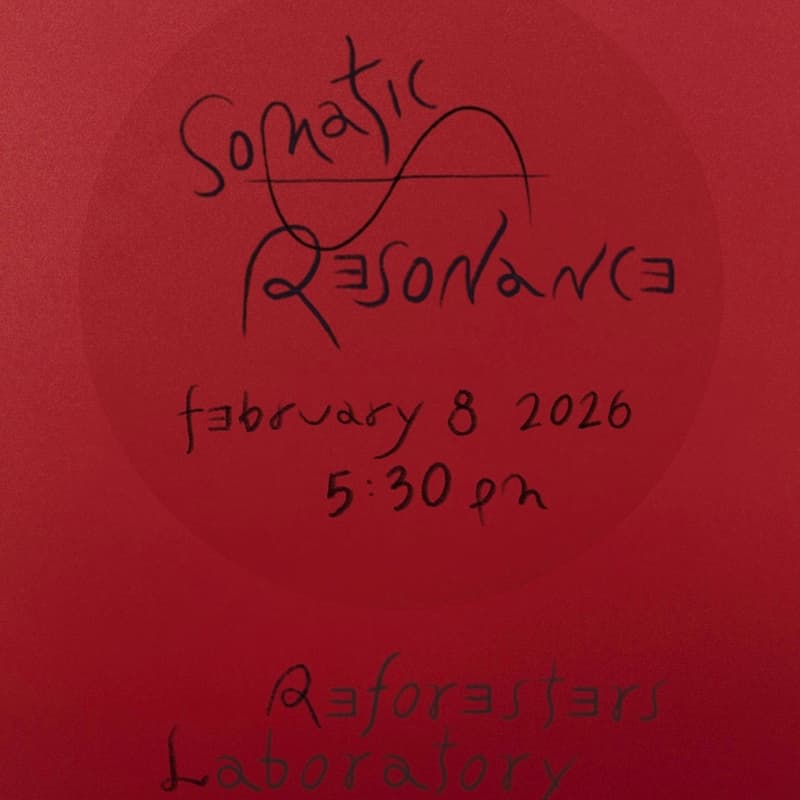 Somatic
Resonance
february 8 2026
5:30 pm
Reforesters
Laboratory